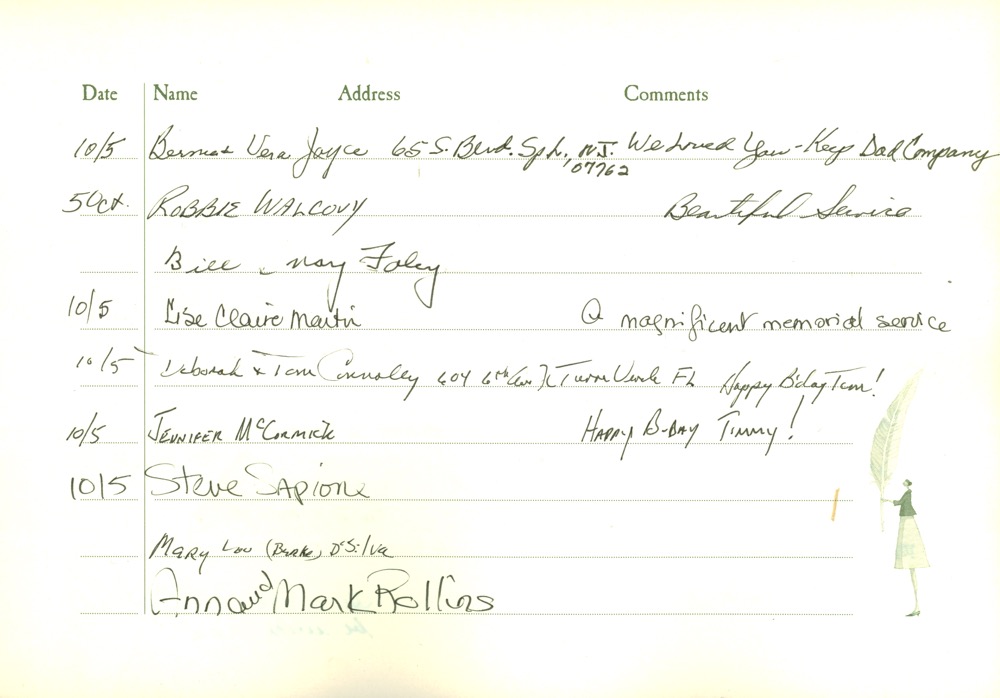 Date Name Address Comments
10/5 Bernie + Vera Joyce 65 S. Blvd. Spk., N.J. We Loved You - Keep Dad Company
07762
5 Oct. ROBBIE WALCOVY Beautiful Service
Bill & Mary Foley
10/5 Lise Claire Martin A magnificent memorial service
10/5 Deborah & Tom Connolley 604 6th Ave FL Happy B'day Tim!
10/5 JENNIFER McCORMICK HAPPY B-DAY TIMMY!
10/5 Steve Sapione
MARY LOU (Burke) D'Silva
Ann and Mark Rollins